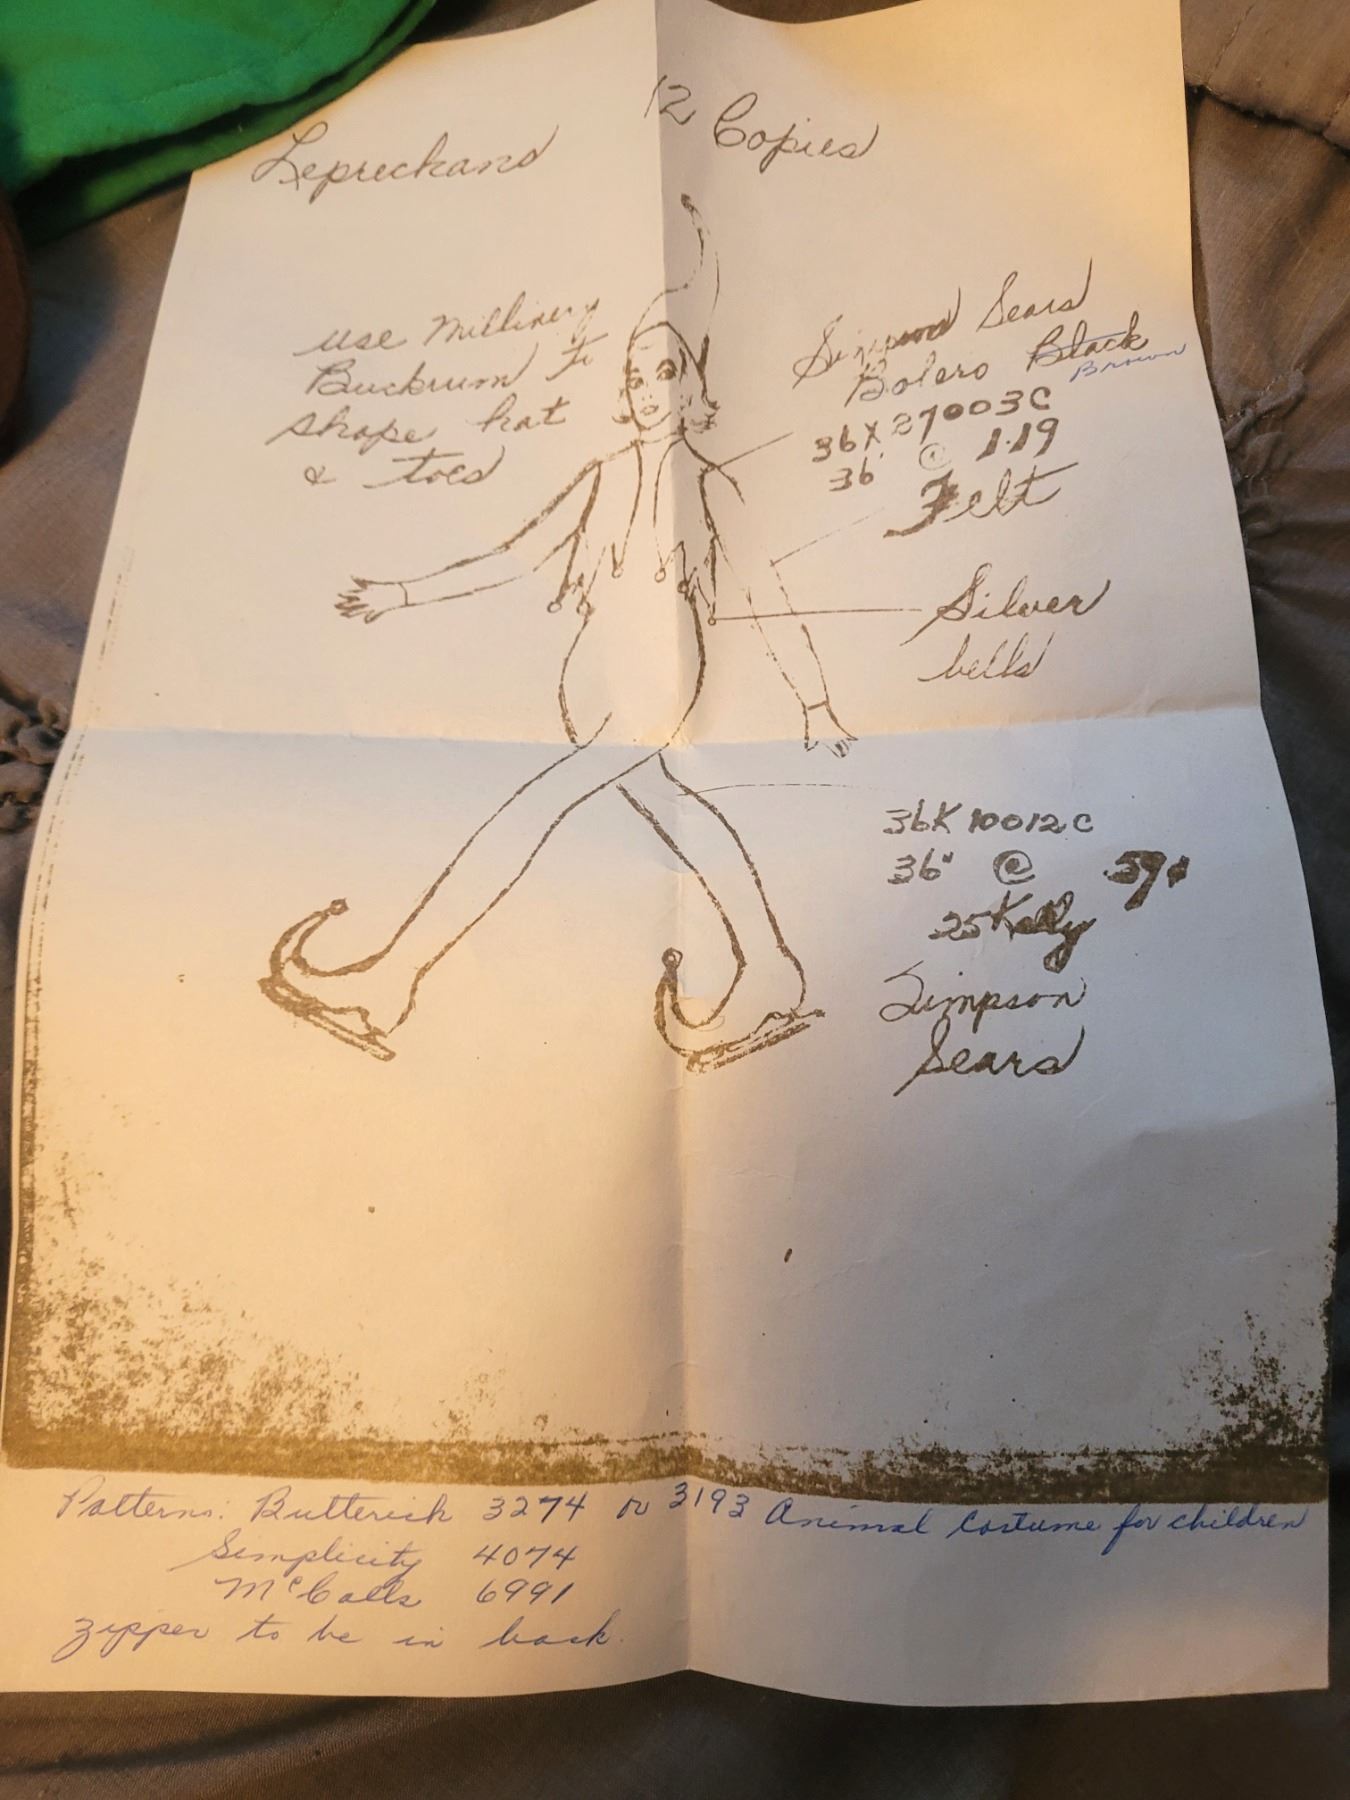 12 Copies
Lepreckans
use Millinery
Buckrum to
shape hat
& toes
Simpson Sears
Bolero Black
Brown
36X 27003C
36" @ 1.19
Felt
Silver
bells
36K 10012C
36" @ .59¢
25 Kelly
Simpson
Sears
Patterns: Butterick 3274 or 3193 Animal Costume for children
Simplicity 4074
McCalls 6991
zipper to be in back.